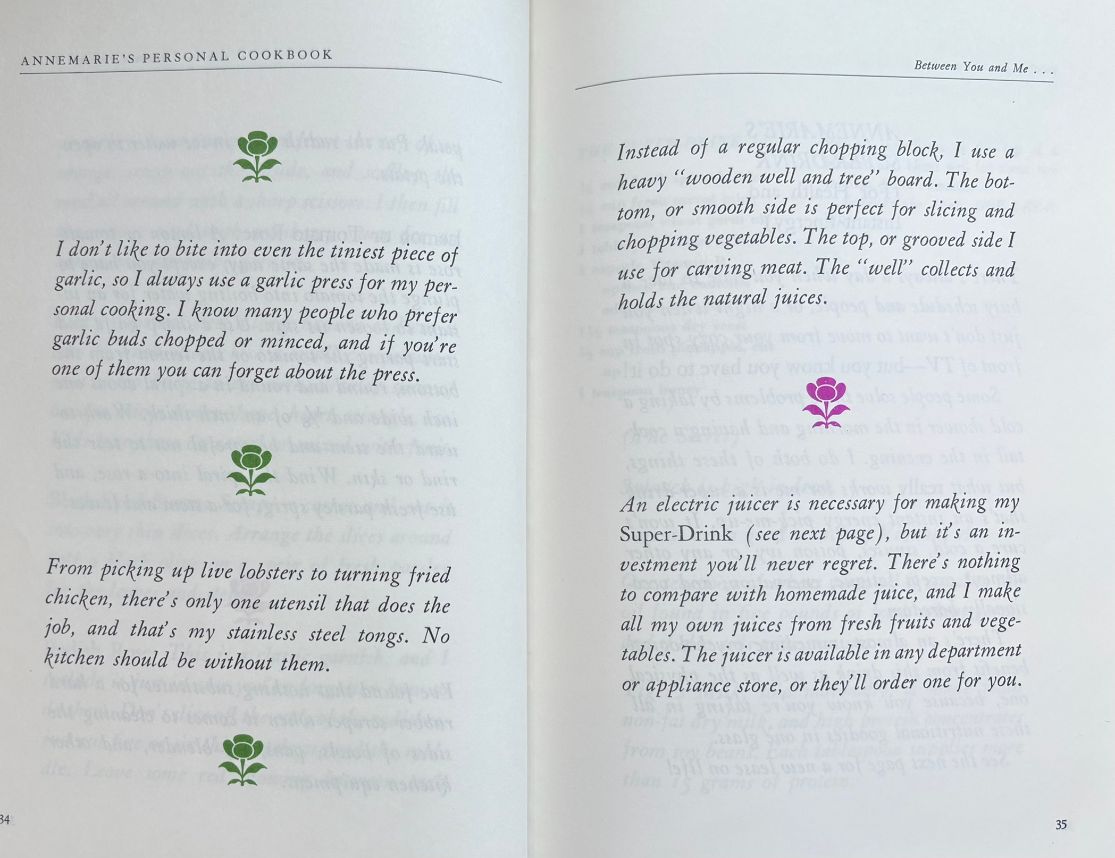 ANNEMARIE'S PERSONAL COOKBOOK
I don't like to bite into even the tiniest piece of
garlic, so I always use a garlic press for my per-
sonal cooking. I know many people who prefer
garlic buds chopped or minced, and if you're
one of them you can forget about the press.
From picking up live lobsters to turning fried
chicken, there's only one utensil that does the
job, and that's my stainless steel tongs. No
kitchen should be without them.
34
Between You and Me . . .
Instead of a regular chopping block, I use a
heavy “wooden well and tree” board. The bot-
tom, or smooth side is perfect for slicing and
chopping vegetables. The top, or grooved side I
use for carving meat. The “well” collects and
holds the natural juices.
An electric juicer is necessary for making my
Super-Drink (see next page), but it's an in-
vestment you'll never regret. There's nothing
to compare with homemade juice, and I make
all my own juices from fresh fruits and vege-
tables. The juicer is available in any department
or appliance store, or they'll order one for you.
35